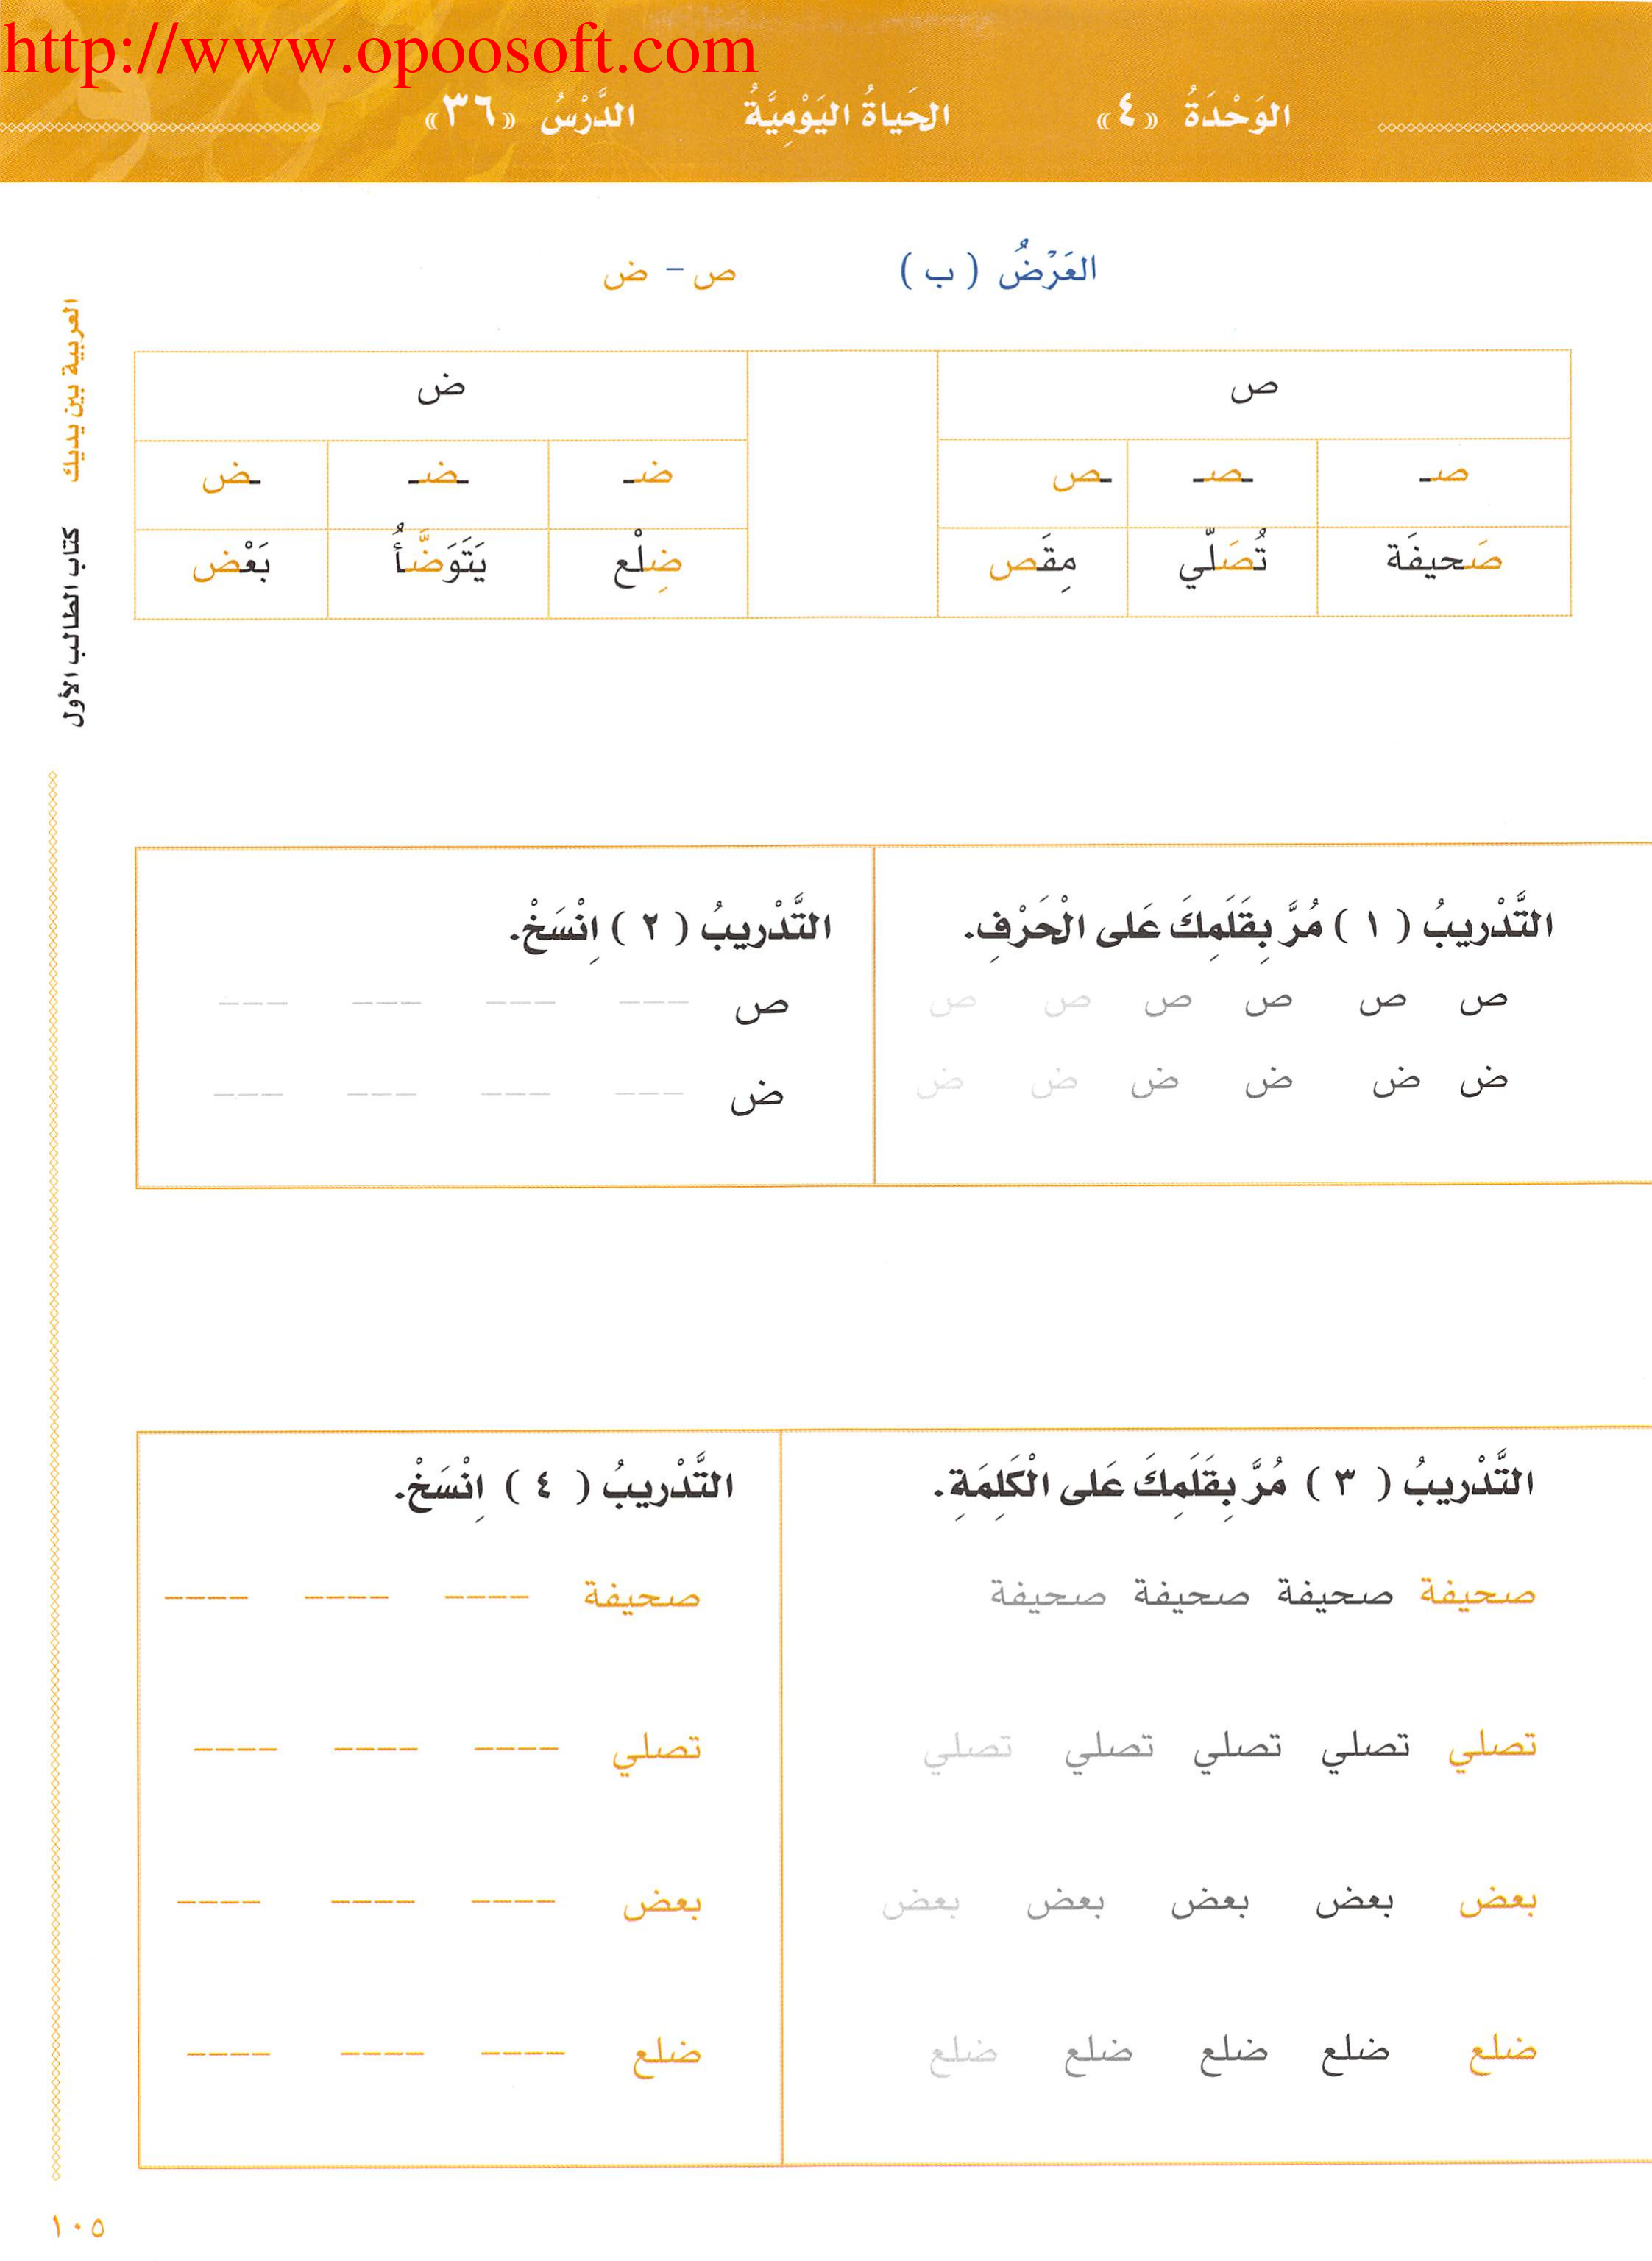 http://www.opoosoft.com
الوَحْدَةُ «٤» الحَياةُ اليَوْمِيَّةُ الدَّرْسُ «٣٦»
العَرْضُ ( ب ) ص - ض
ص ض
صـ ـصـ ـص ضـ ـضـ ـض
صَحيفَة تُصَلّي مِقَص ضِلْع يَتَوَضَّأُ بَعْض
العربية بين يديك
كتاب الطالب الأول
التَّدْريبُ ( ١ ) مُرَّ بِقَلَمِكَ عَلى الْحَرْفِ.
ص ص ص ص ص ص
ض ض ض ض ض ض
التَّدْريبُ ( ٢ ) اِنْسَخْ.
ص --- --- --- ---
ض --- --- --- ---
التَّدْريبُ ( ٣ ) مُرَّ بِقَلَمِكَ عَلى الْكَلِمَةِ.
صحيفة صحيفة صحيفة صحيفة
تصلي تصلي تصلي تصلي تصلي
بعض بعض بعض بعض بعض
ضلع ضلع ضلع ضلع ضلع
التَّدْريبُ ( ٤ ) اِنْسَخْ.
صحيفة ---- ---- ----
تصلي ---- ---- ----
بعض ---- ---- ----
ضلع ---- ---- ----
١٠٥